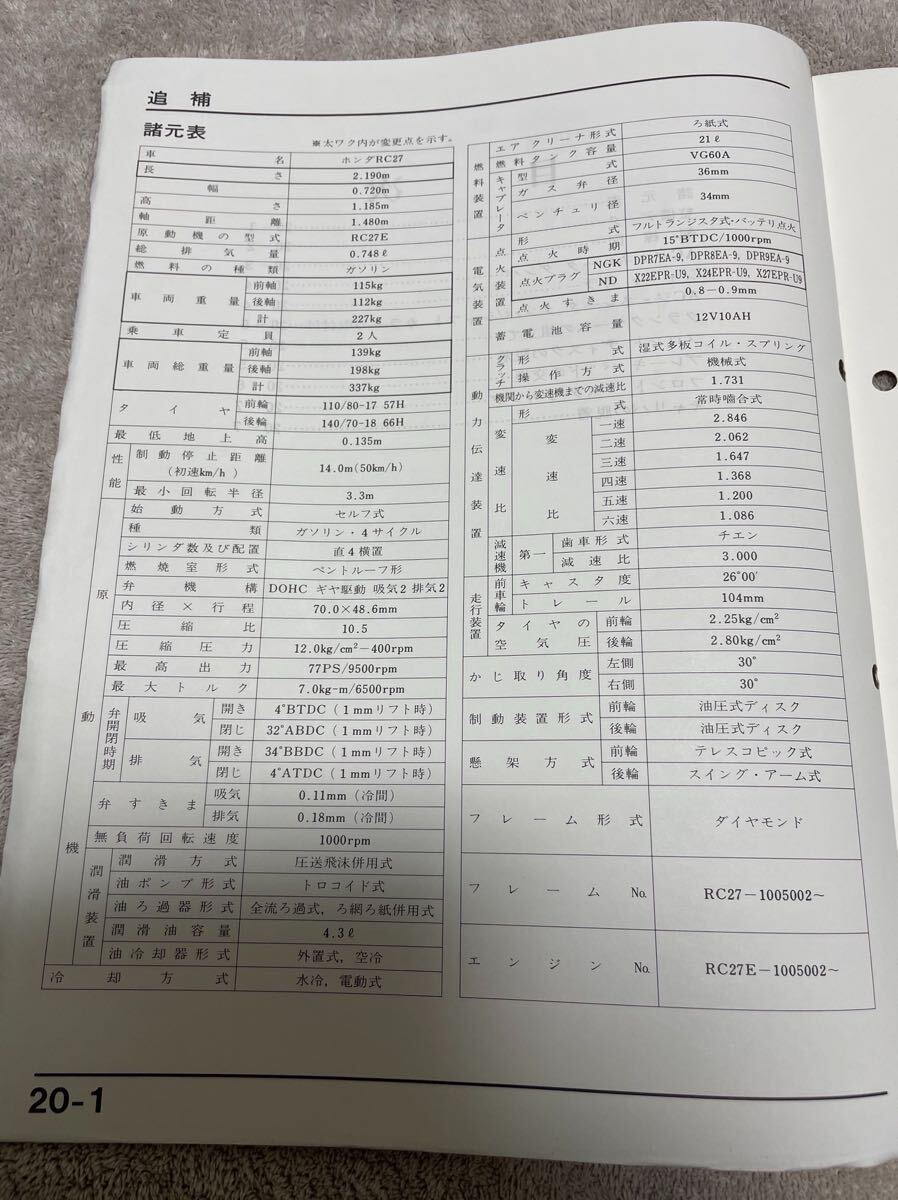 追補
諸元表
※太ワク内が変更点を示す。
車名 ホンダRC27
長さ 2.190m
幅 0.720m
高さ 1.185m
軸距離 1.480m
原動機の型式 RC27E
総排気量 0.748ℓ
燃料の種類 ガソリン
車両重量 前軸 115kg
後軸 112kg
計 227kg
乗車定員 2人
車両総重量 前軸 139kg
後軸 198kg
計 337kg
タイヤ 前輪 110/80-17 57H
後輪 140/70-18 66H
最低地上高 0.135m
性能 制動停止距離 (初速km/h) 14.0m(50km/h)
最小回転半径 3.3m
原動機 始動方式 セルフ式
種類 ガソリン・4サイクル
シリンダ数及び配置 直4横置
燃焼室形式 ペントルーフ形
弁機構 DOHC ギヤ駆動 吸気2 排気2
内径×行程 70.0×48.6mm
圧縮比 10.5
圧縮圧力 12.0kg/cm²-400rpm
最高出力 77PS/9500rpm
最大トルク 7.0kg-m/6500rpm
弁開閉時期 吸気 開き 4°BTDC(1mmリフト時)
閉じ 32°ABDC(1mmリフト時)
排気 開き 34°BBDC(1mmリフト時)
閉じ 4°ATDC(1mmリフト時)
弁すきま 吸気 0.11mm(冷間)
排気 0.18mm(冷間)
無負荷回転速度 1000rpm
潤滑装置 潤滑方式 圧送飛沫併用式
油ポンプ形式 トロコイド式
油ろ過器形式 全流ろ過式, ろ網ろ紙併用式
潤滑油容量 4.3ℓ
油冷却器形式 外置式, 空冷
冷却方式 水冷, 電動式
燃料装置 エアクリーナ形式 ろ紙式
燃料タンク容量 21ℓ
キャブレータ 型式 VG60A
ガス弁径 36mm
ベンチュリ径 34mm
電気装置 点火装置 形式 フルトランジスタ式・バッテリ点火
点火時期 15°BTDC/1000rpm
点火プラグ NGK DPR7EA-9, DPR8EA-9, DPR9EA-9
ND X22EPR-U9, X24EPR-U9, X27EPR-U9
点火すきま 0.8-0.9mm
蓄電池容量 12V10AH
動力伝達装置 クラッチ 形式 湿式多板コイル・スプリング
操作方式 機械式
機関から変速機までの減速比 1.731
変速比 形式 常時噛合式
変速比 一速 2.846
二速 2.062
三速 1.647
四速 1.368
五速 1.200
六速 1.086
減速機 第一 歯車形式 チエン
減速比 3.000
走行装置 前車輪 キャスタ度 26°00′
トレール 104mm
タイヤの空気圧 前輪 2.25kg/cm²
後輪 2.80kg/cm²
かじ取り角度 左側 30°
右側 30°
制動装置形式 前輪 油圧式ディスク
後輪 油圧式ディスク
懸架方式 前輪 テレスコピック式
後輪 スイング・アーム式
フレーム形式 ダイヤモンド
フレームNo. RC27-1005002~
エンジンNo. RC27E-1005002~
20-1